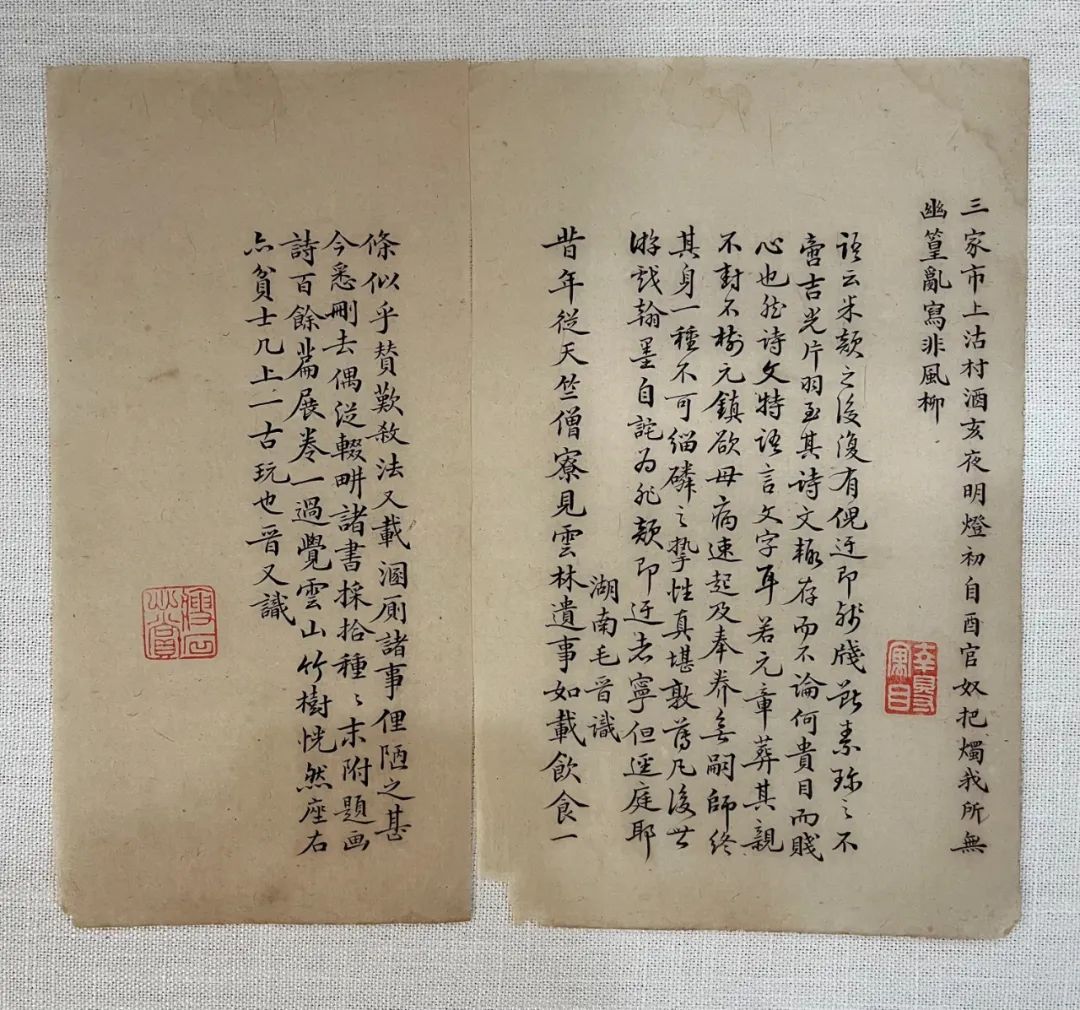 三家市上沽村酒亥夜明燈初自酉官奴把燭我所無
幽篁亂寫非風柳
語云米顛之後復有倪迂即殘牋斷素珍〻不
啻吉光片羽至其詩文極存而不論何貴目而賤
心也然詩文特語言文字耳若元章葬其親
不封不樹元鎮欲母病速起及奉養無嗣師終
其身一種不可緇磷之摯性真堪敦薄凡後世
游戲翰墨自詫為非顛即迂者寧但逕庭耶
湖南毛晉識
昔年從天竺僧寮見雲林遺事如載飲食一
條似乎贊歎殺法又載溷厠諸事俚陋之甚
今悉刪去偶從輟畊諸書採拾種〻末附題画
詩百餘篇展卷一過覺雲山竹樹恍然座右
亦貧士几上一古玩也晉又識